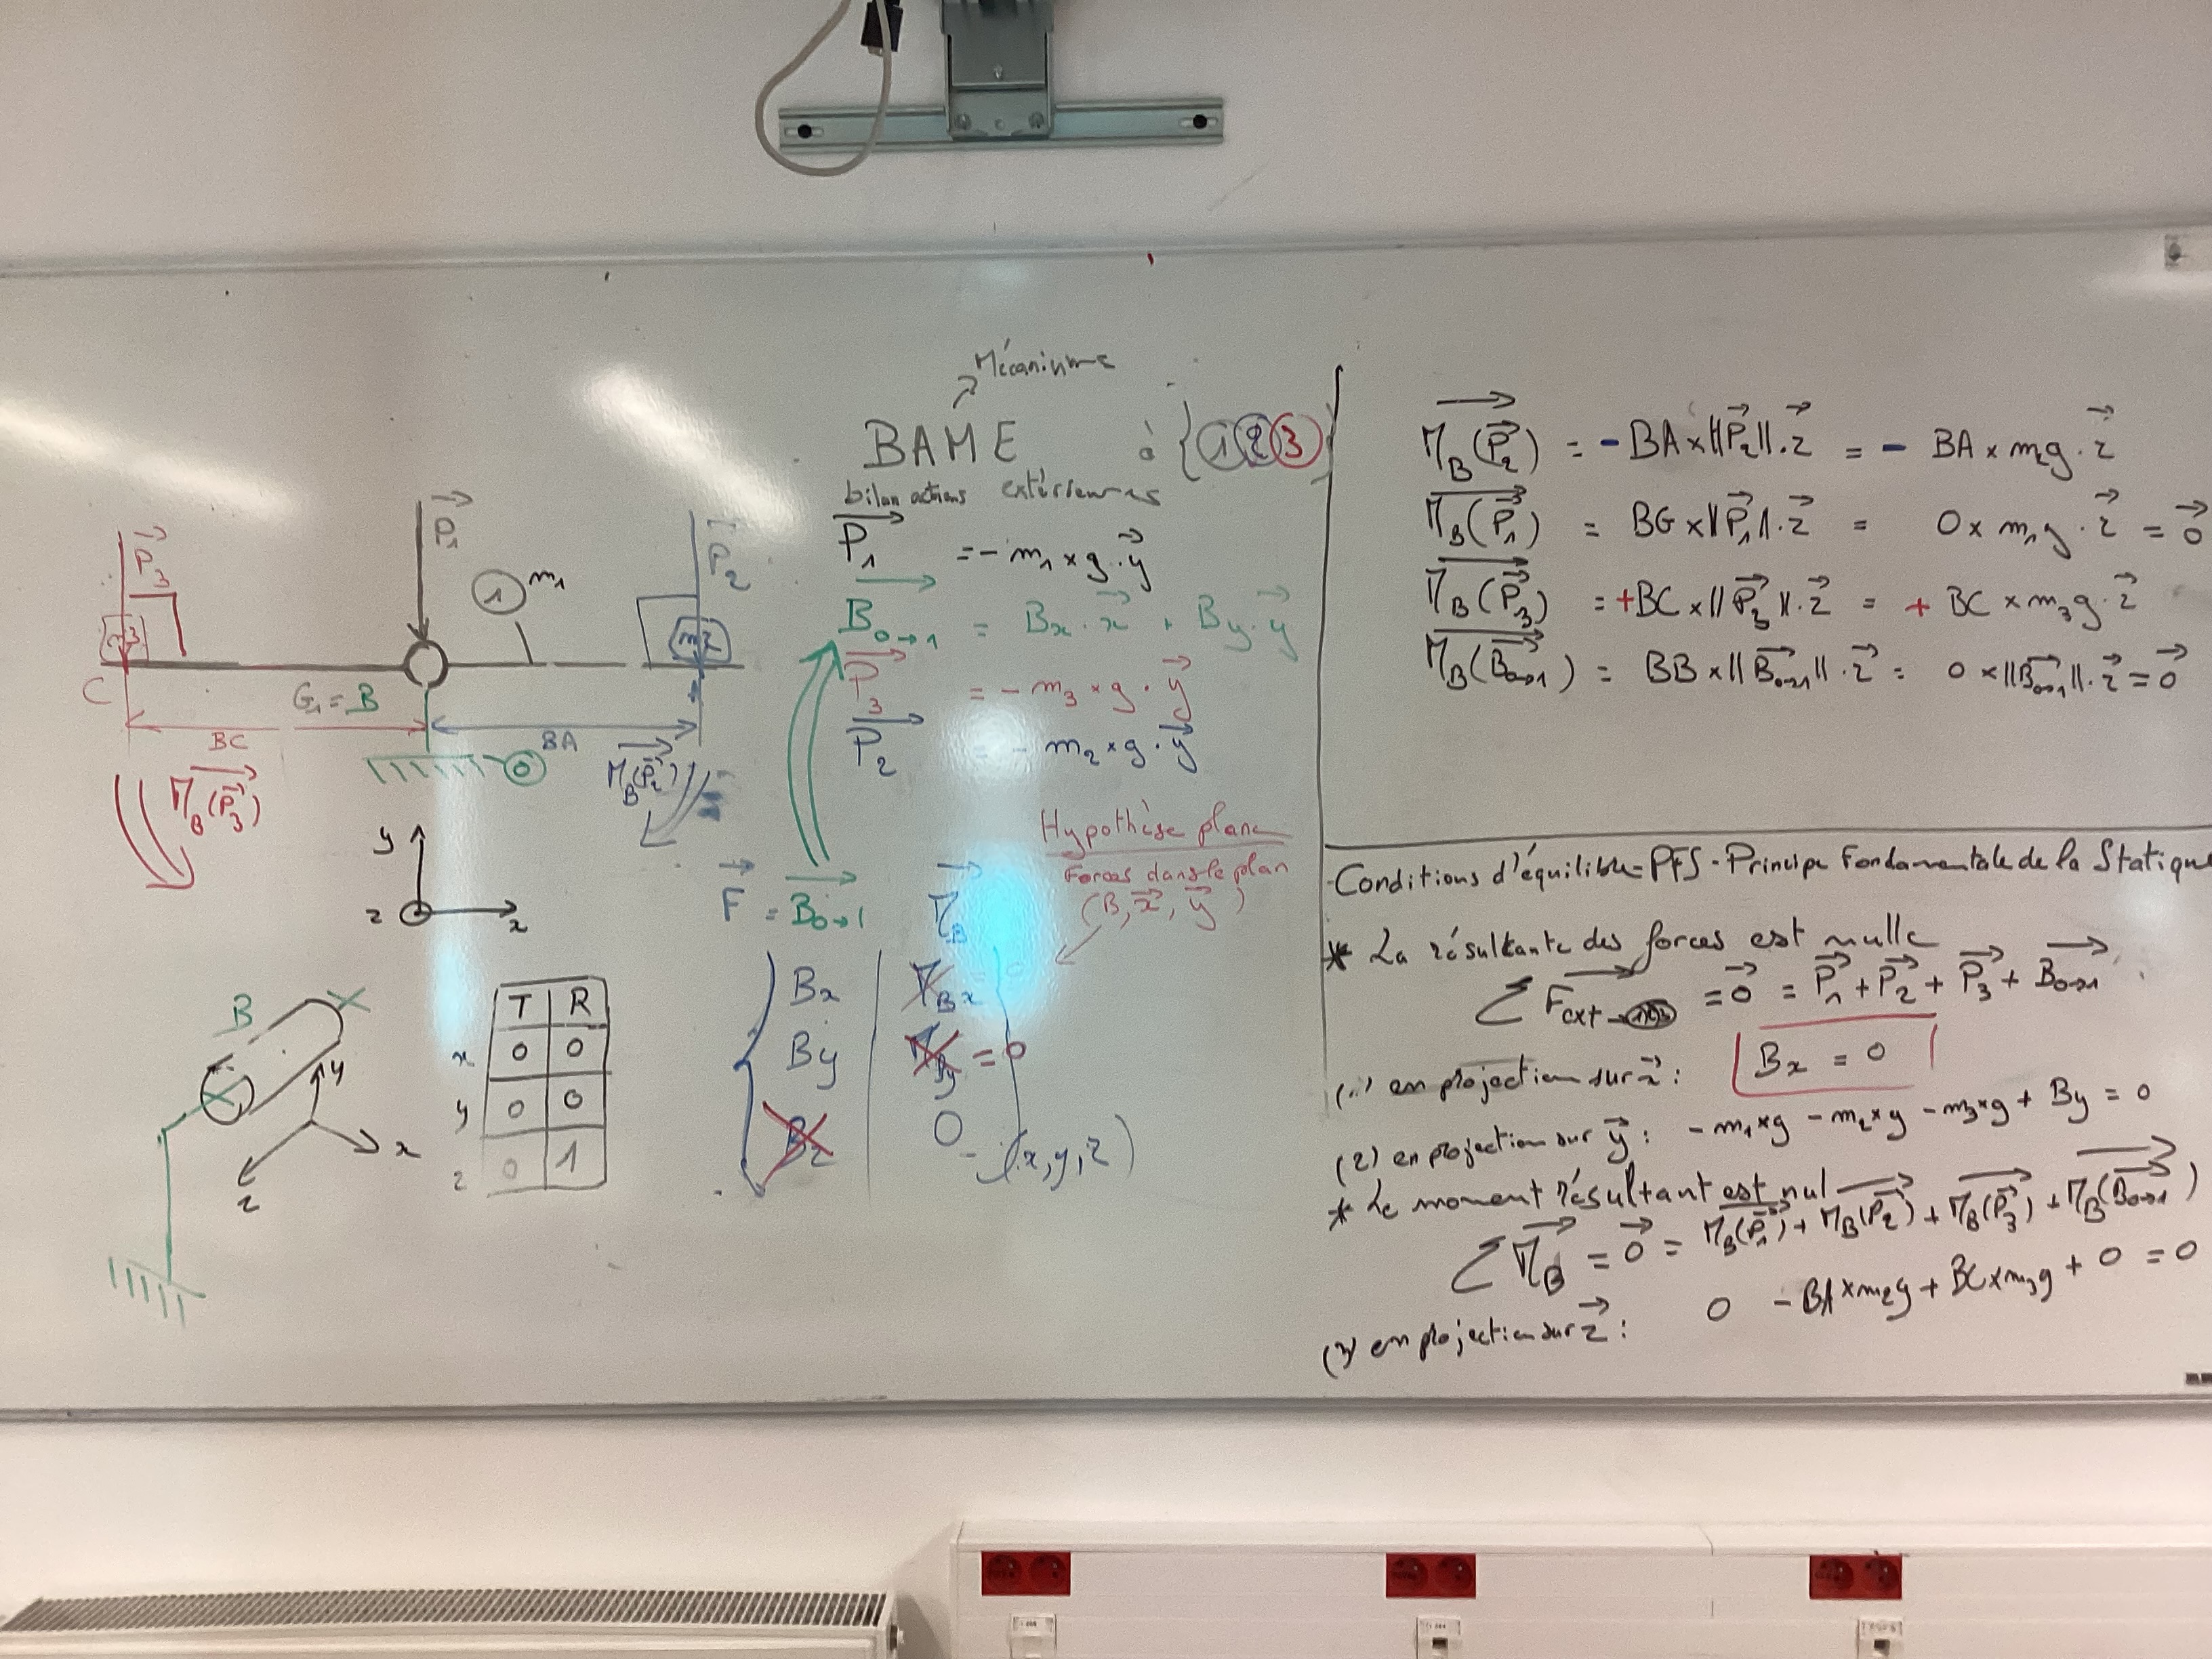 P₃
P₁
1 m₁
P₂
m3
m2
C
G₁ = B
BC
BA
0
M_B(P₃)
M_B(P₂)
y
z
x
B
y
x
z
T R
x 0 0
y 0 0
z 0 1
Mécanisme
BAME à {1 2 3}
bilan actions extérieures
P₁ = - m₁ × g · y
B₀→₁ = Bx · x + By · y
P₃ = - m₃ × g · y
P₂ = - m₂ × g · y
Hypothèse plane
Forces dans le plan
(B, x, y)
F = B₀→₁ M_B
Bx M_Bx = 0
By M_By = 0
Bz 0
(x, y, z)
M_B(P₂) = - BA × ||P₂|| · z = - BA × m₂g · z
M_B(P₁) = BG × ||P₁|| · z = 0 × m₁g · z = 0
M_B(P₃) = + BC × ||P₃|| · z = + BC × m₃g · z
M_B(B₀→₁) = BB × ||B₀→₁|| · z = 0 × ||B₀→₁|| · z = 0
Conditions d'équilibre - PFS - Principe Fondamentale de la Statique
* La résultante des forces est nulle
Σ Fext→123 = 0 = P₁ + P₂ + P₃ + B₀→₁
(1) en projection sur x : Bx = 0
(2) en projection sur y : - m₁×g - m₂×g - m₃×g + By = 0
* Le moment résultant est nul
Σ M_B = 0 = M_B(P₁) + M_B(P₂) + M_B(P₃) + M_B(B₀→₁)
(3) en projection sur z : 0 - BA×m₂g + BC×m₃g + 0 = 0